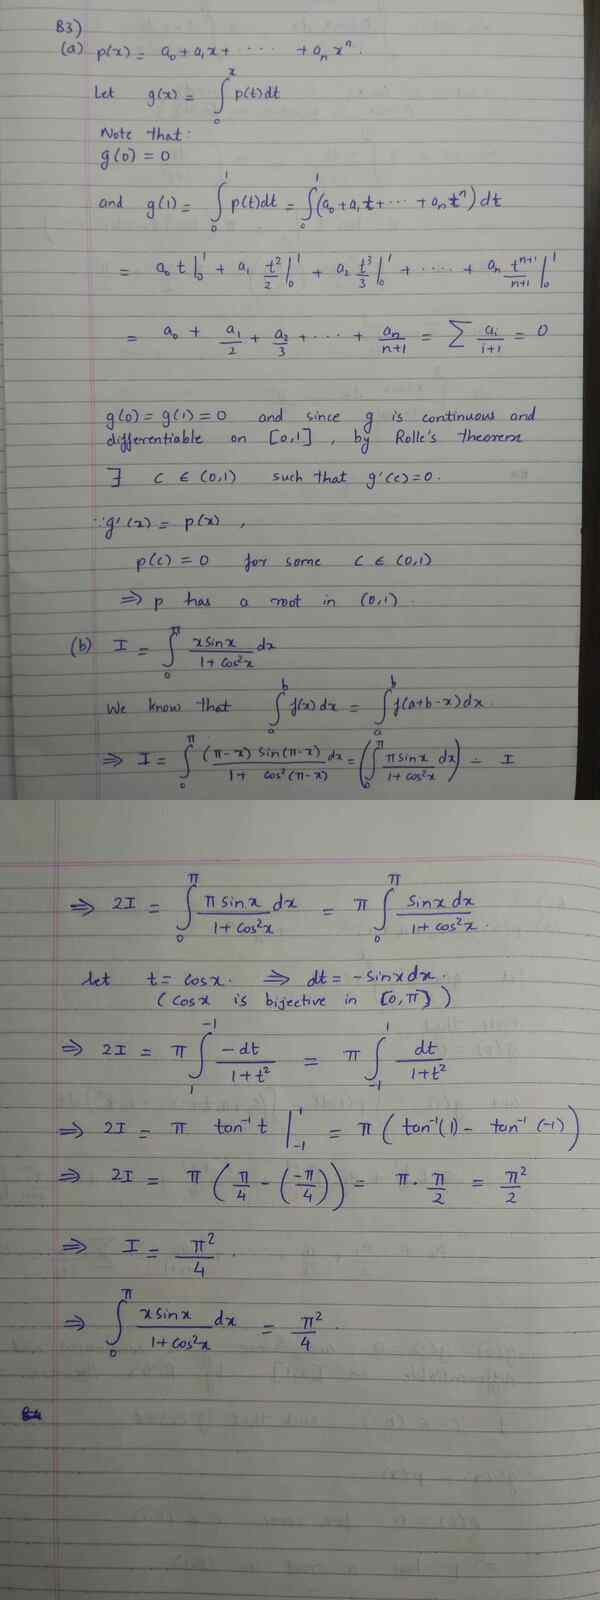 B3)
(a) p(x) = a₀ + a₁x + ⋯ + aₙxⁿ.
Let g(x) = ∫₀ˣ p(t)dt
Note that:
g(0) = 0
and g(1) = ∫₀¹ p(t)dt = ∫₀¹ (a₀ + a₁t + ⋯ + aₙtⁿ) dt
= a₀ t|₀¹ + a₁ t²/2|₀¹ + a₂ t³/3|₀¹ + ⋯ + aₙ tⁿ⁺¹/(n+1)|₀¹
= a₀ + a₁/2 + a₂/3 + ⋯ + aₙ/(n+1) = ∑ aᵢ/(i+1) = 0
g(0) = g(1) = 0 and since g is continuous and
differentiable on [0,1], by Rolle's theorem
∃ c ∈ (0,1) such that g'(c) = 0.
∵ g'(x) = p(x),
p(c) = 0 for some c ∈ (0,1)
⇒ p has a root in (0,1).
(b) I = ∫₀^π (x sinx)/(1 + cos²x) dx
We know that ∫ₐᵇ f(x)dx = ∫ₐᵇ f(a+b-x)dx.
⇒ I = ∫₀^π ((π-x) sin(π-x))/(1 + cos²(π-x)) dx = (∫₀^π (π sinx)/(1 + cos²x) dx) - I
⇒ 2I = ∫₀^π (π sinx dx)/(1 + cos²x) = π ∫₀^π (sinx dx)/(1 + cos²x).
let t = cosx. ⇒ dt = -sinx dx.
(cosx is bijective in [0,π])
⇒ 2I = π ∫₁⁻¹ (-dt)/(1+t²) = π ∫₋₁¹ dt/(1+t²)
⇒ 2I = π tan⁻¹ t |₋₁¹ = π (tan⁻¹(1) - tan⁻¹(-1))
⇒ 2I = π (π/4 - (-π/4)) = π · π/2 = π²/2
⇒ I = π²/4.
⇒ ∫₀^π (x sinx)/(1 + cos²x) dx = π²/4.